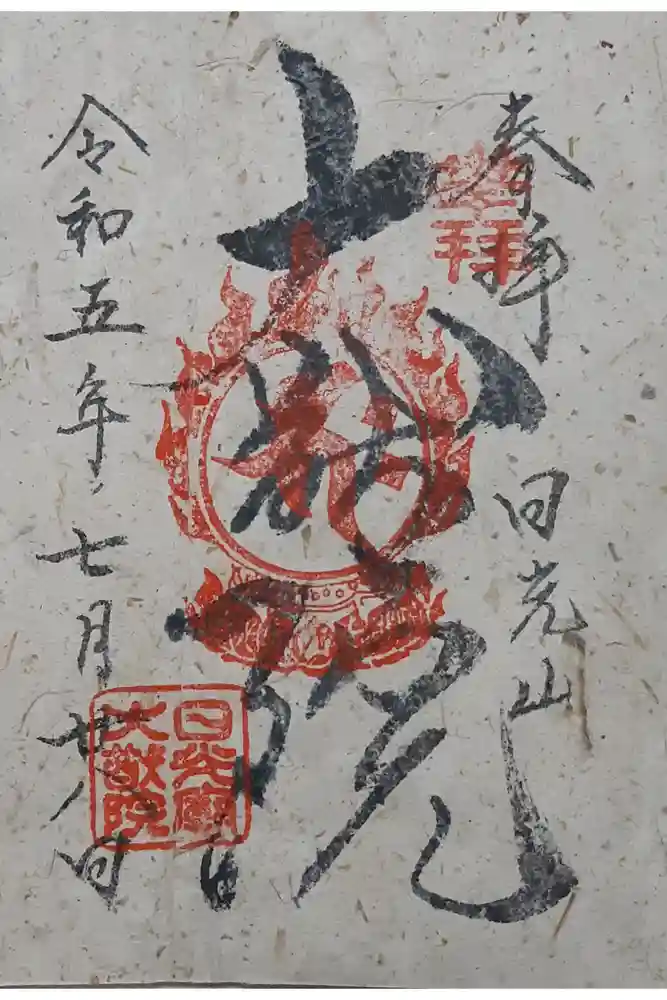 奉拝
日光山
大猷院
令和五年七月廿八日
登拝
日光廟
大猷院